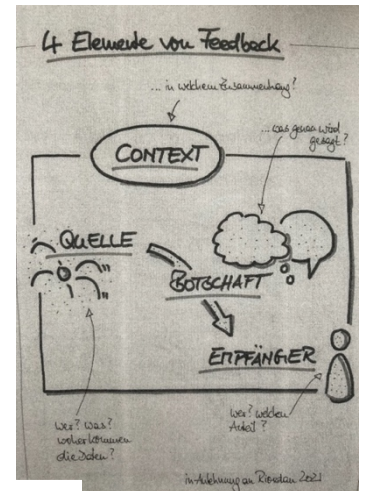 4 Elemente von Feedback
... in welchem Zusammenhang?
... was genau wird
gesagt?
CONTEXT
QUELLE
BOTSCHAFT
EMPFÄNGER
wer? was?
woher kommen
die Daten?
wer? welchen
in Anlehnung an 2021